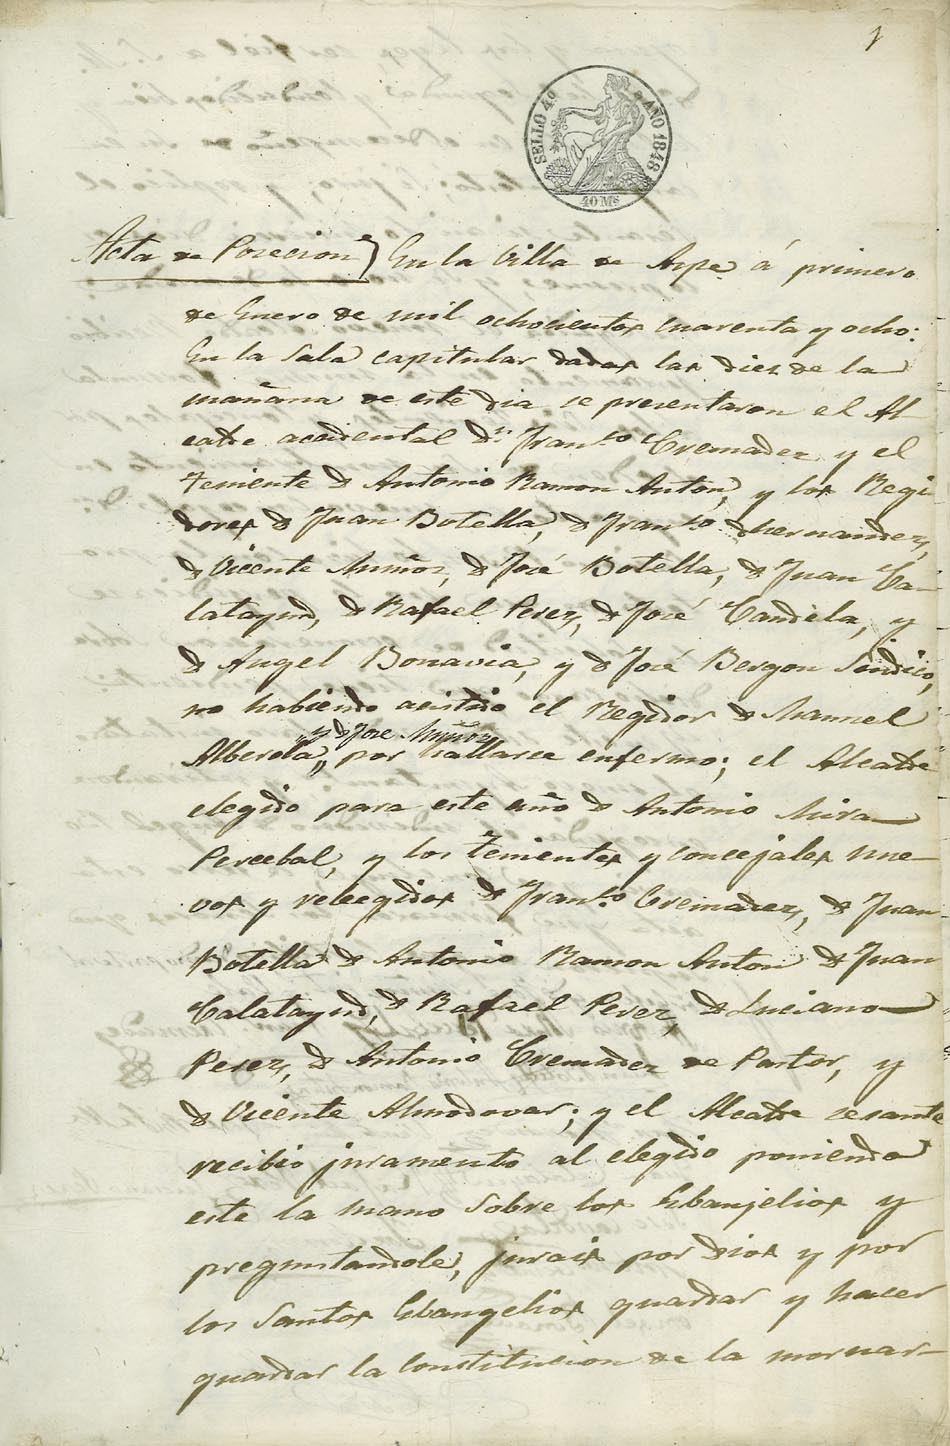 1
SELLO 4º AÑO 1848
40 Ms
Acta de Posecion) En la Villa de Aspe á primero
de Enero de mil ochocientos cuarenta y ocho:
En la Sala capitular dadas las diez de la
mañana de este dia se presentaron el Al
calde accidental Dn. Franco Cremadez y el
Teniente D Antonio Ramon Anton, y los Regi
dores D Juan Botella, D Franco. Hernandez,
D Vicente Muñoz, D José Botella, D Juan Ca-
latayud, D Rafael Perez, D José Candela, y
D Angel Bonavia, y D José Bergon Sindico,
no habiendo acistido el Regidor D Manuel
y D Jose Muñoz
Alberola, por hallarse enfermo; el Alcalde
elegido para este año D Antonio Mira
Percebal, y los Tenientes y concejales nue-
vos y relegidos D Franco. Cremadez, D Juan
Botella D Antonio Ramon Anton D Juan
Calatayud, D Rafael Perez, D Luciano
Perez, D Antonio Cremadez de Pastor, y
D Vicente Almodovar; y el Alcalde cesante
recibio juramento al elegido poniendo
este la mano sobre los Ebanjelios y
preguntandole, jurais por Dios y por
los Santos Ebangelios guardar y hacer
guardar la Constitucion de la monar-